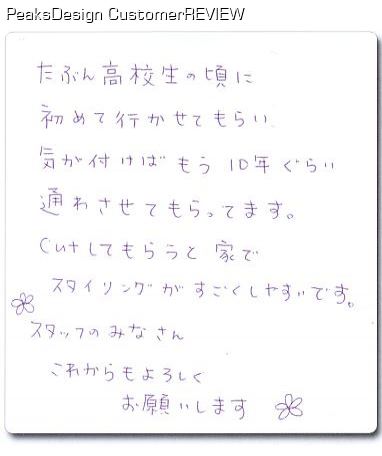 PeaksDesign CustomerREVIEW
たぶん高校生の頃に
初めて行かせてもらい
気が付けばもう10年ぐらい
通わさせてもらってます。
Cutしてもらうと家で
スタイリングがすごくしやすいです。
スタッフのみなさん
これからもよろしく
お願いします